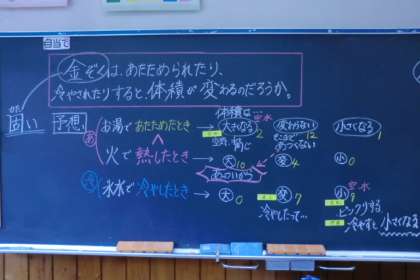 目当て
金ぞくは、あたためられたり、
冷やされたりすると、体積が変わるのだろうか。
かた
固い
予想
体積は…
あ お湯であたためたとき → 大きくなる 2 変わらない 12 小さくなる 1
空気 同じ そこまであつくない
火で熱したとき → 大 10 変 4 小 0
あ 氷水で冷やしたとき → 大 0 変 7 小 9
空、水
冷やしたって… ビックリする
冷やすと小さくなる